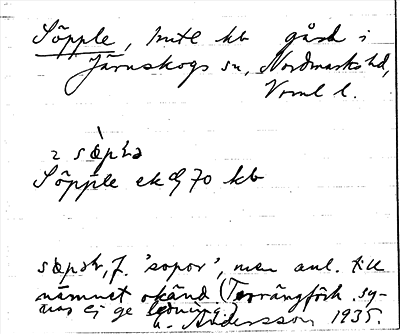 Söpple, mtl kb gård i
Järnskogs sn, Nordmarks hd,
Vrml l.
Söpple ek 70 kb
f. 'sopor', men anl. till
namnet okänd. (Terrängförh. sy-
nas ej ge ledning.)
Andersson 1935